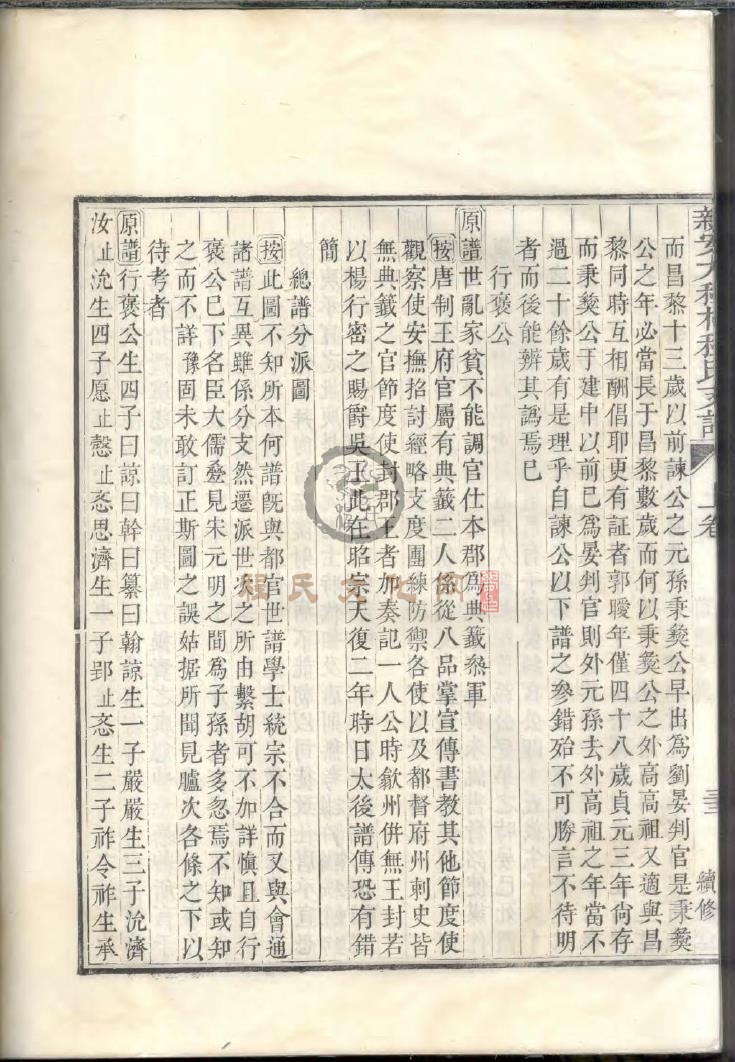 而昌黎十三歲以前諫公之元孫秉彜公早出爲劉晏判官是秉彜
公之年必當長于昌黎數歲而何以秉彜公之外高高祖又適與昌
黎同時互相酬倡耶更有証者郭曖年僅四十八歲貞元三年尙存
而秉彜公于建中以前已爲晏判官則外元孫去外高祖之年當不
過二十餘歲有是理乎自諫公以下譜之參錯殆不可勝言不待明
者而後能辨其譌焉已
行褒公
原譜世亂家貧不能調官仕本郡爲典籖叅軍
按唐制王府官屬有典籖二人係從八品掌宣傳書教其他節度使
觀察使安撫招討經略支度團練防禦各使以及都督府州刺史皆
無典籖之官節度使封郡王者加奏記一人公時歙州併無王封若
以楊行密之賜爵吳王此在昭宗天復二年時日太後譜傳恐有錯
簡
總譜分派圖
按此圖不知所本何譜旣與都官世譜學士統宗不合而又與會通
諸譜互異雖係分支然遷派世次之所由繫胡可不加詳愼且自行
褒公已下名臣大儒疊見宋元明之間爲子孫者多忽焉不知或知
之而不詳豫固未敢訂正斯圖之誤姑据所聞見臚次各條之下以
待考者
原譜行褒公生四子曰諒曰幹曰纂曰翰諒生一子嚴嚴生三子沇濟
汝止沇生四子愿止慤止忞思濟生一子郢止忞生二子祚令祚生承
上卷
續修
程氏文化网